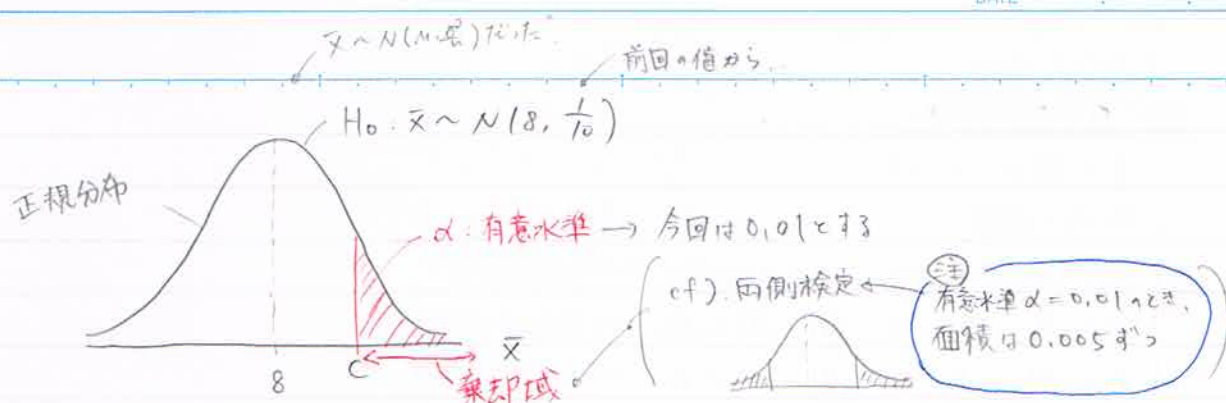 DATE
x̄ ~ N(μ, σ²/n) だった.
前回の値から.
H₀: x̄ ~ N(8, 1/10)
正規分布
α: 有意水準 → 今回は0.01とする
cf). 両側検定
注
有意水準α=0.01のとき,
面積は0.005ずつ
8
C
x̄
棄却域